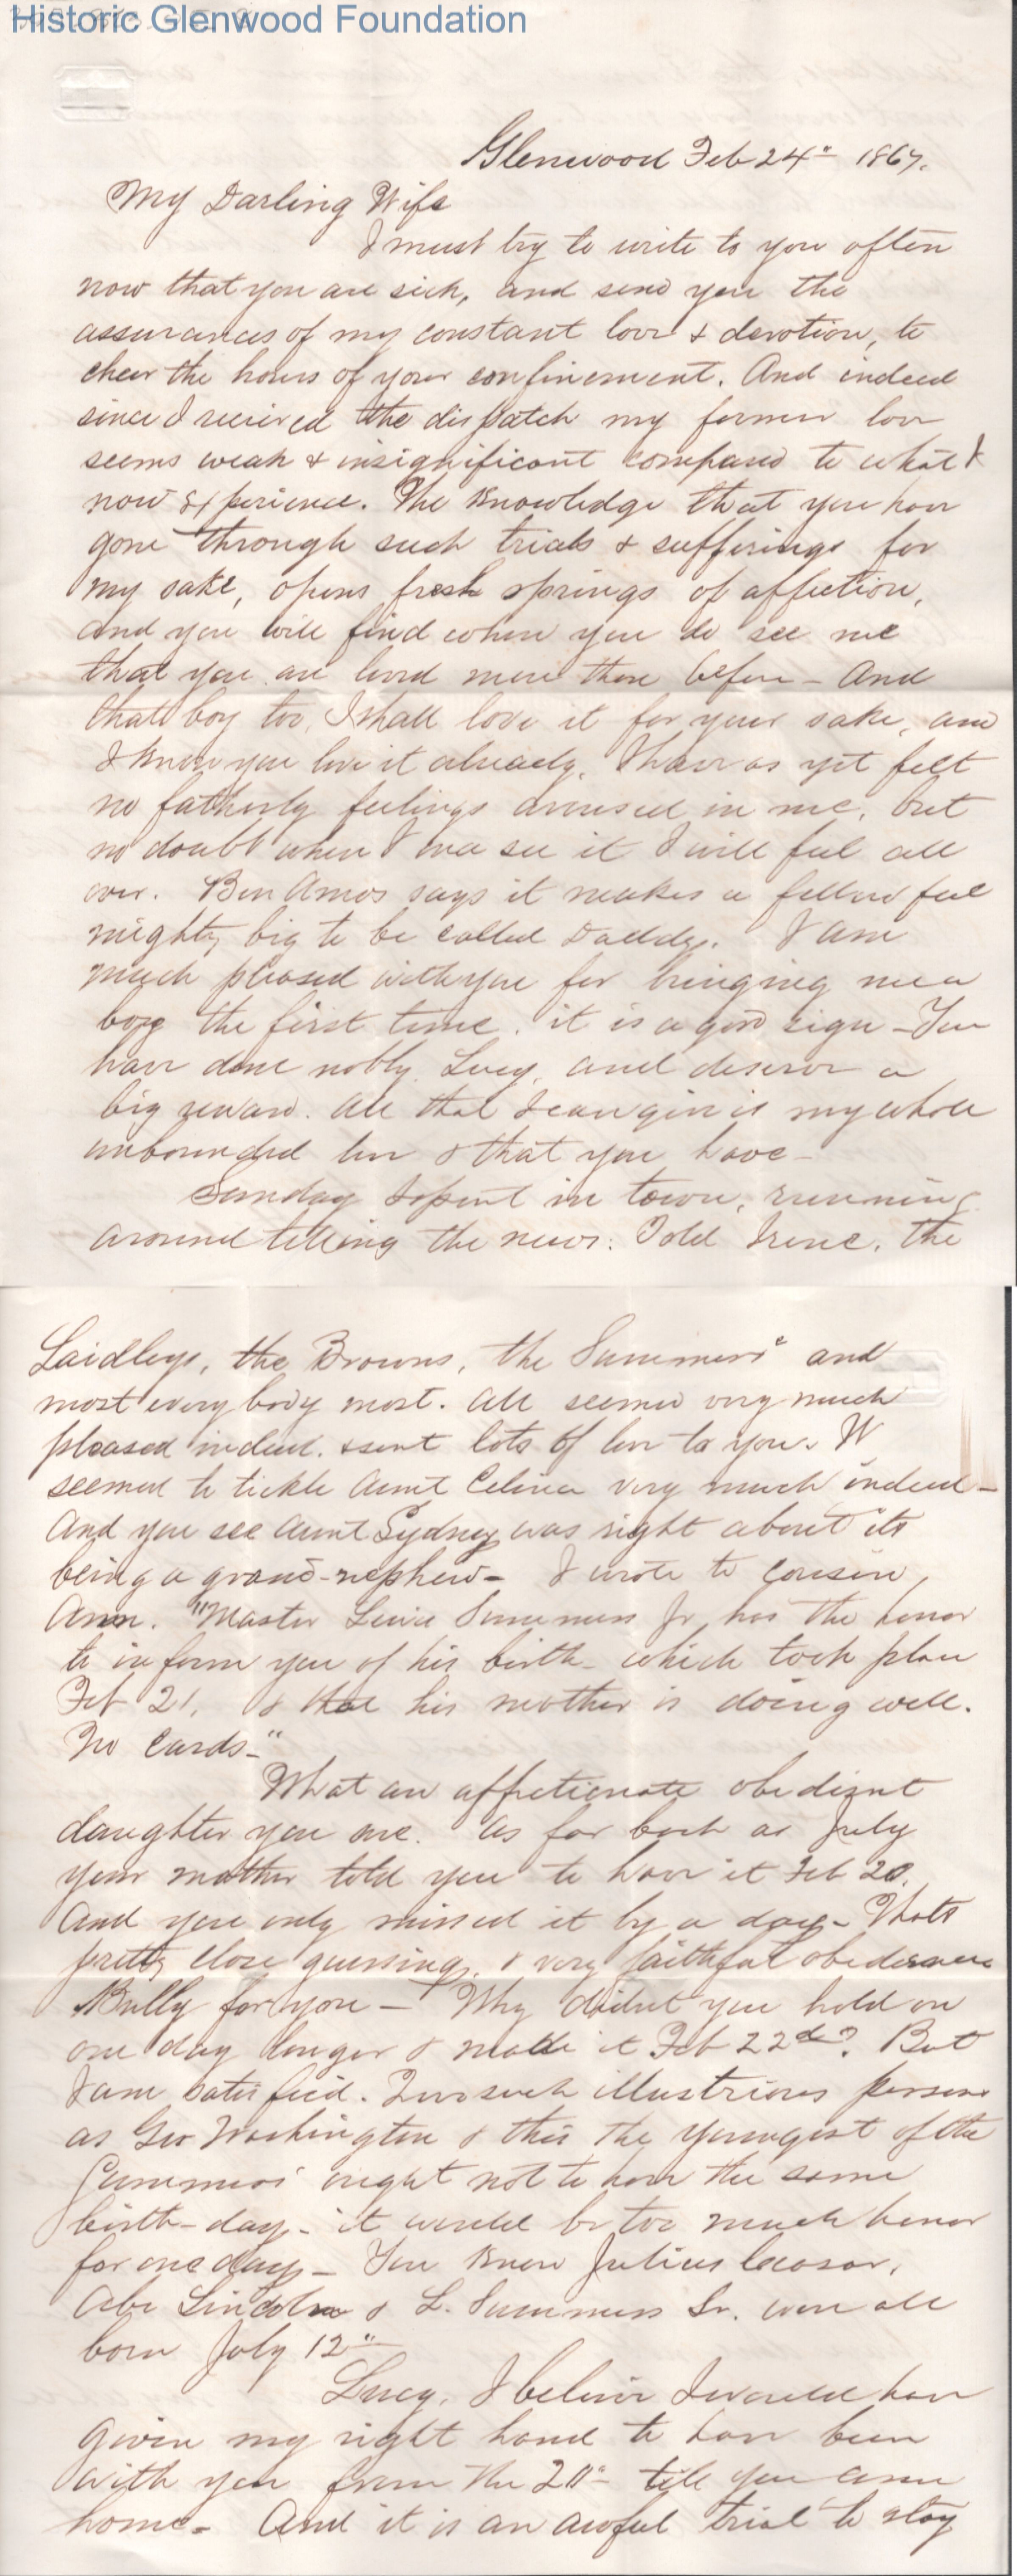 Historic Glenwood Foundation
Glenwood Feb 24" 1867.
My Darling Wife
I must try to write to you often
now that you are sick, and send you the
assurances of my constant love & devotion, to
cheer the hours of your confinement. And indeed
since I received the dispatch my former love
seems weak & insignificant compared to what I
now experience. The knowledge that you have
gone through such trials & sufferings for
my sake, opens fresh springs of affection,
and you will find when you do see me
that you are loved more than before - And
that boy too, I shall love it for your sake, and
I know you love it already. I have as yet felt
no fatherly feelings aroused in me, but
no doubt when I see it I will feel all
over. Ben Amos says it makes a fellow feel
mighty big to be called Daddy. I am
much pleased with you for bringing me a
boy the first time. it is a good sign - You
have done nobly Lucy, and deserve a
big reward. All that I can give is my whole
unbounded love & that you have -
Sunday I spent in town, running
around telling the news. Told Irene, the
Laidleys, the Browns, the Summers' and
most every body most. All seemed very much
pleased indeed. & sent lots of love to you. It
seemed to tickle Aunt Celina very much indeed -
And you see Aunt Sydney was right about its
being a grand-nephew - I wrote to cousin
Ann. "Master Lewis Summers Jr has the honor
to inform you of his birth - which took place
Feb 21. & that his mother is doing well.
No Cards -"
What an affectionate obedient
daughter you are. As far back as July
your mother told you to have it Feb 20.
And you only missed it by a day - Thats
pretty close guessing, & very faithful obedience
Bully for you - Why didnt you hold on
one day longer & made it Feb 22d? But
I am satisfied. Two such illustrious persons
as Geo Washington & this the youngest of the
Summers' ought not to have the same
birth-day - it would be too much honor
for one day - You know Julius Ceasar,
Abe Lincoln & L. Summers Sr. were all
born July 12"
Lucy, I believe I would have
given my right hand to have been
with you from the till you came
home - And it is an awful trial to stay